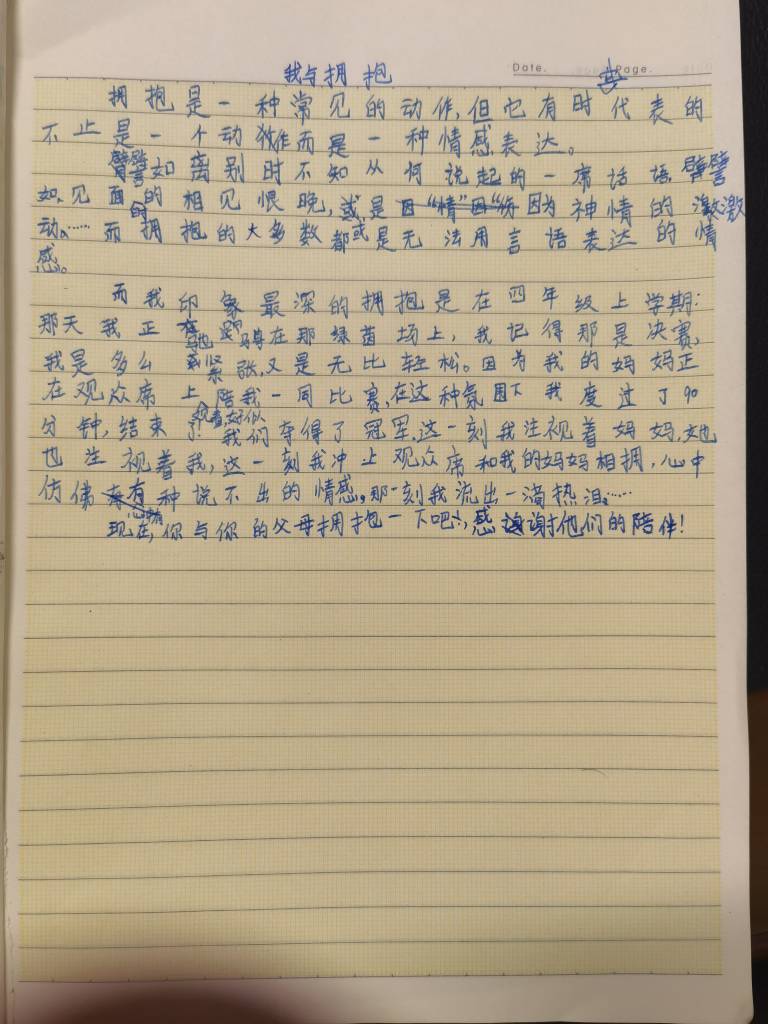 Date.
Page.
我与拥抱
拥抱是一种常见的动作,但它有时代表的
不止是一个动作而是一种情感表达。
譬如离别时不知从何说起的一席话语,譬
如,见面时的相见恨晚,或是因为神情的激
动、……而拥抱的大多数都或是无法用言语表达的情
感。
而我印象最深的拥抱是在四年级上学期:
那天我正驰骋在那绿茵场上,我记得那是决赛,
我是多么紧张,又是无比轻松。因为我的妈妈正
在观众席上陪我一同比赛,在这种氛围下我度过了90
分钟,结束了!我们夺得了冠军,这一刻我注视着妈妈,她
也注视着我,这一刻我冲上观众席和我的妈妈相拥,心中
仿佛有种说不出的情感。那一刻我流出一滴热泪……
现在,你与你的父母拥抱一下吧!,感谢他们的陪伴!